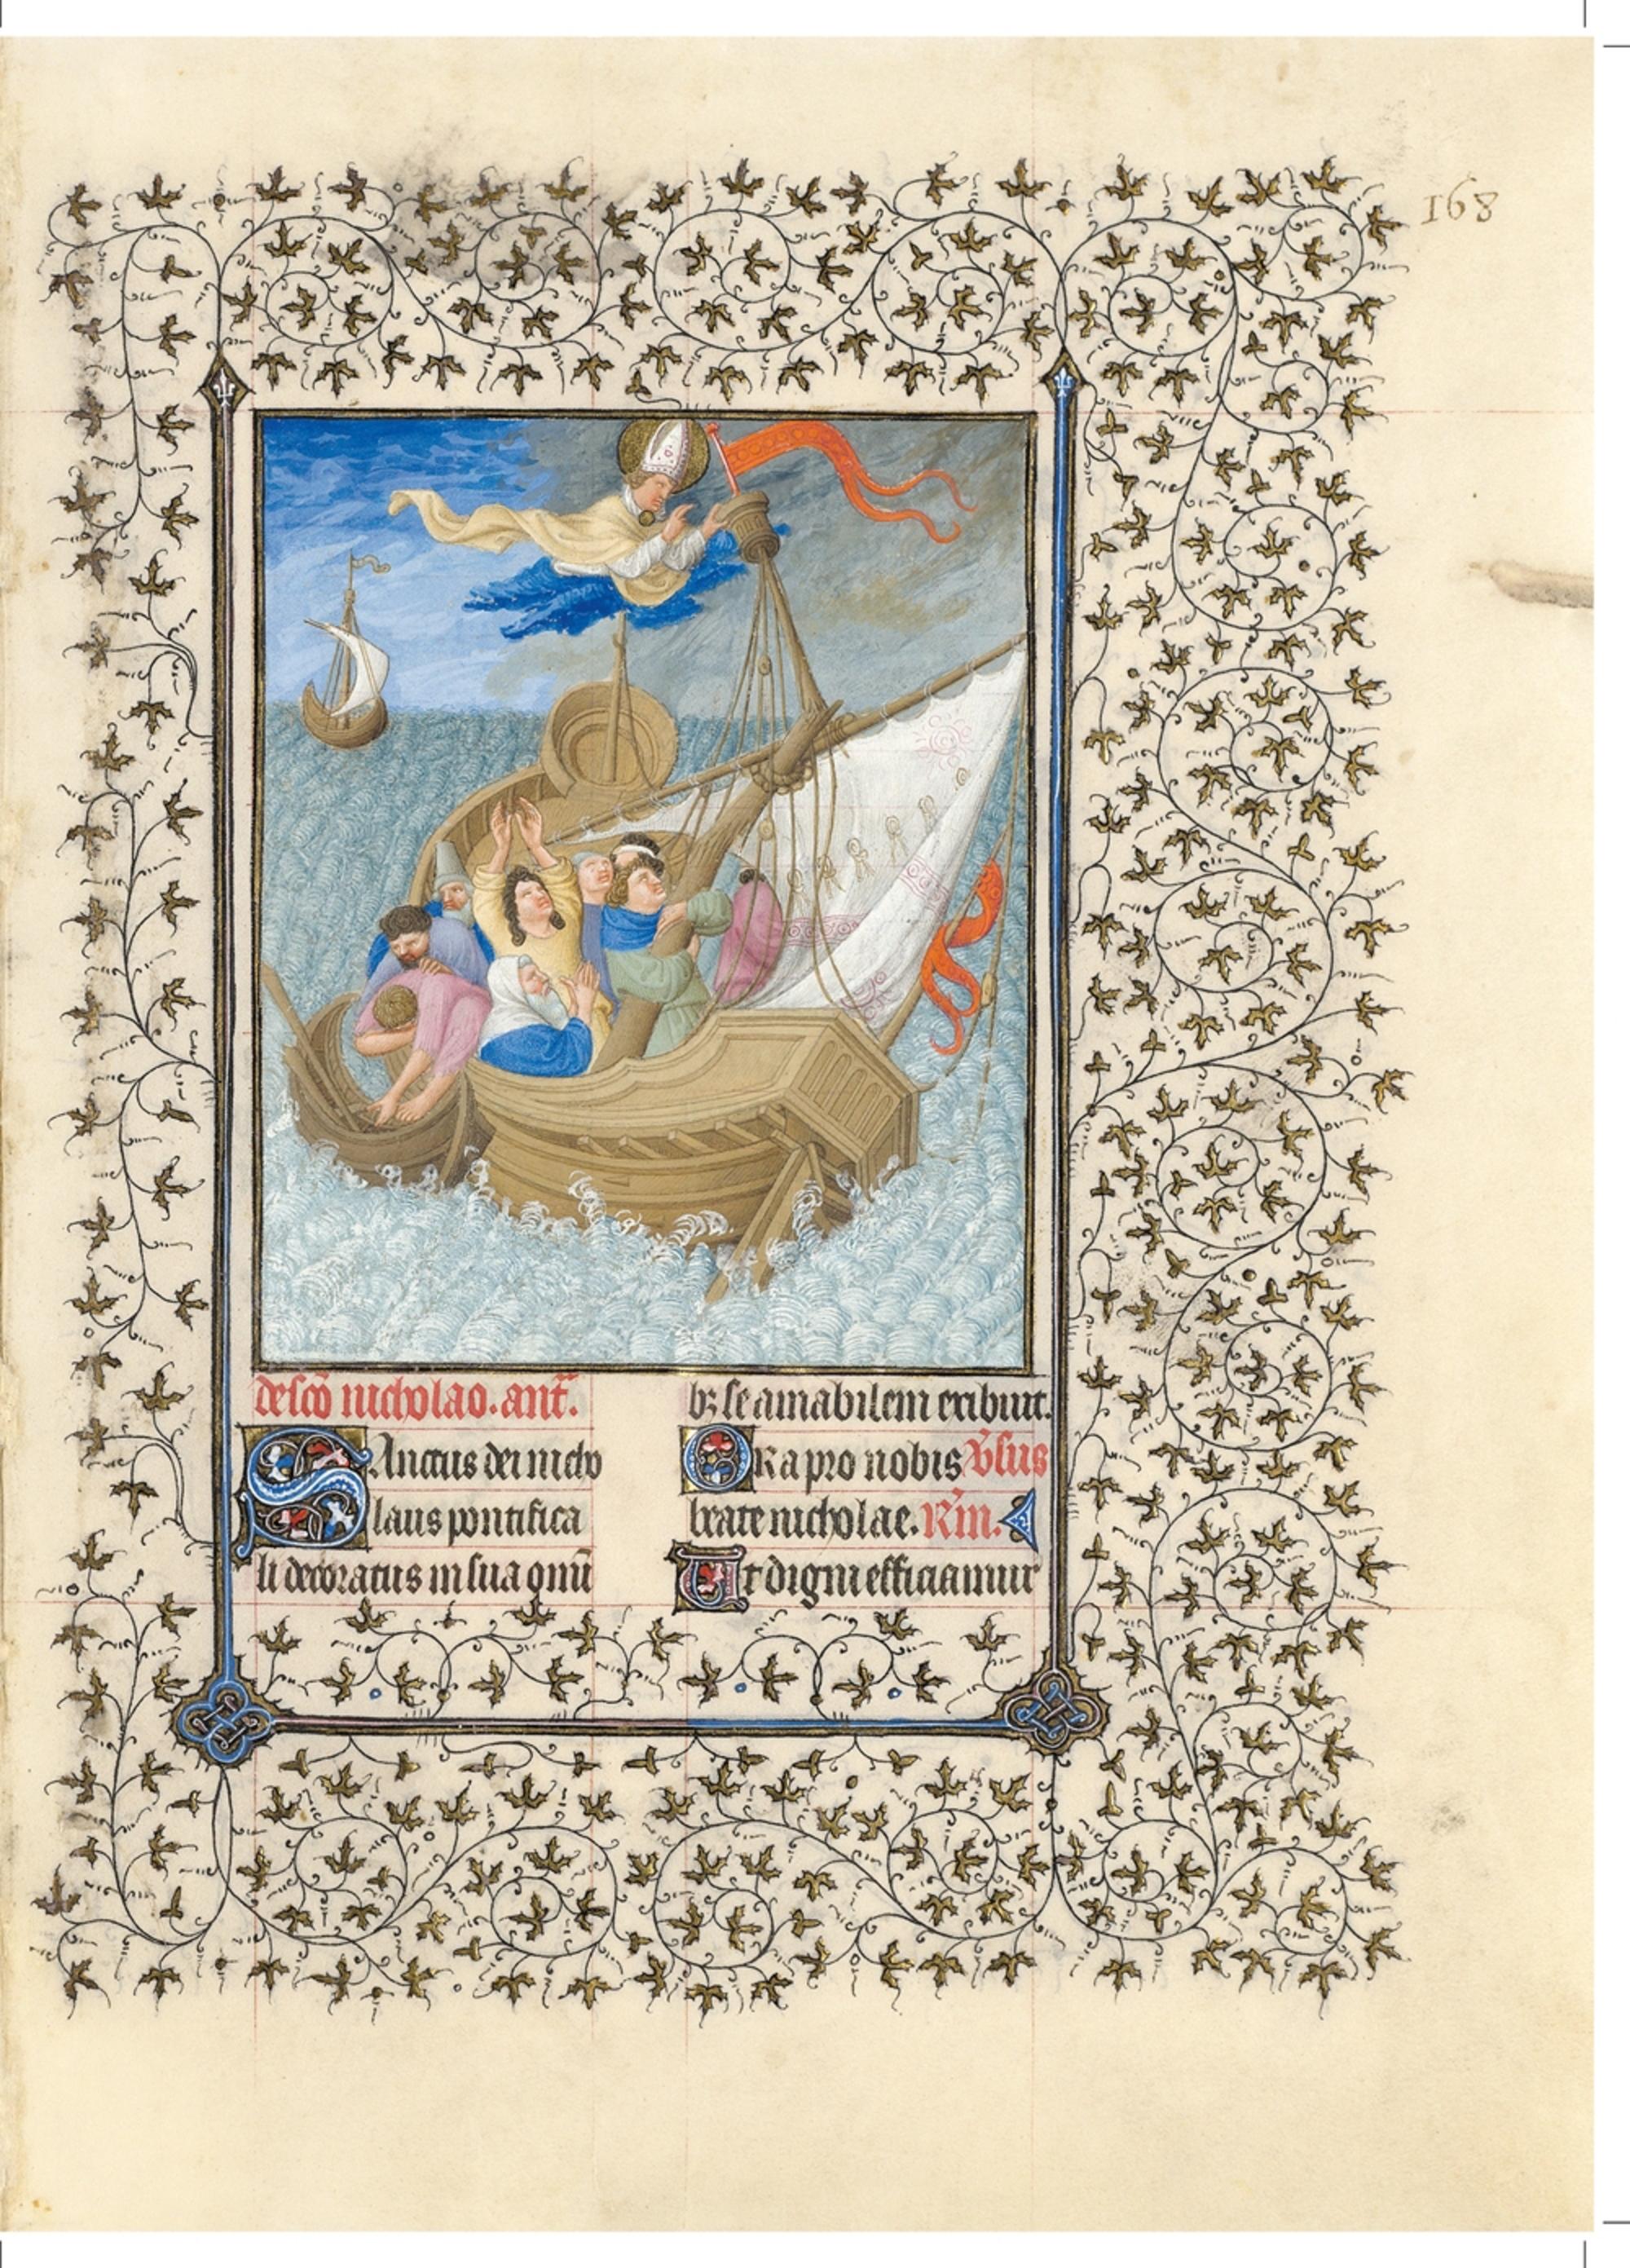 168
de sc̄o nicholao. ant̄.
SAnctus dei nicho
laus pontifica
li decoratus infula omni
bꝫ se amabilem exibuit.
ORa pro nobis v̄sus
beate nicholae. R̄m.
Ut digni efficiamur